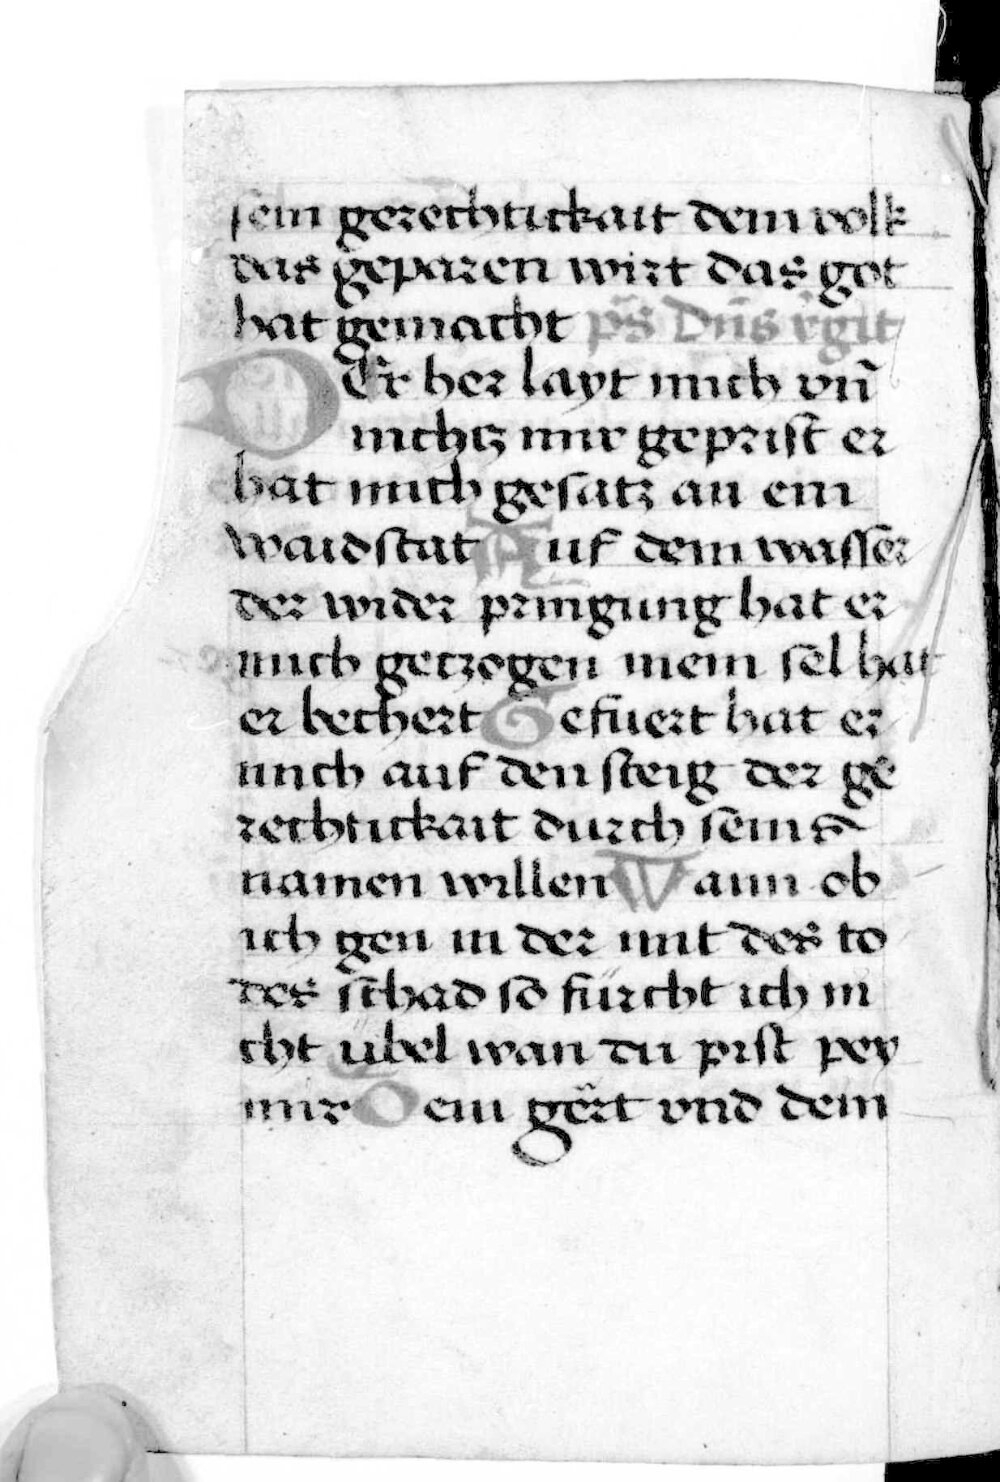 sein gerechtickait dem volk
das geparen wirt das got
hat gemacht ps̃ Dn̄s r̄git
DEr her layt mich vn̄
nichtz mir geprist er
hat mich gesatz an ein
waidstat Auf dem wasser
der wider pringung hat er
mich getzogen mein sel hat
er bechert Gefuert hat er
mich auf den steig der ge
rechtickait durch seins
namen willen Wann ob
ich gen in der mit des to
des schad so fürcht ich ni
cht übel wan du pist pey
mir Dein gert vnd dein